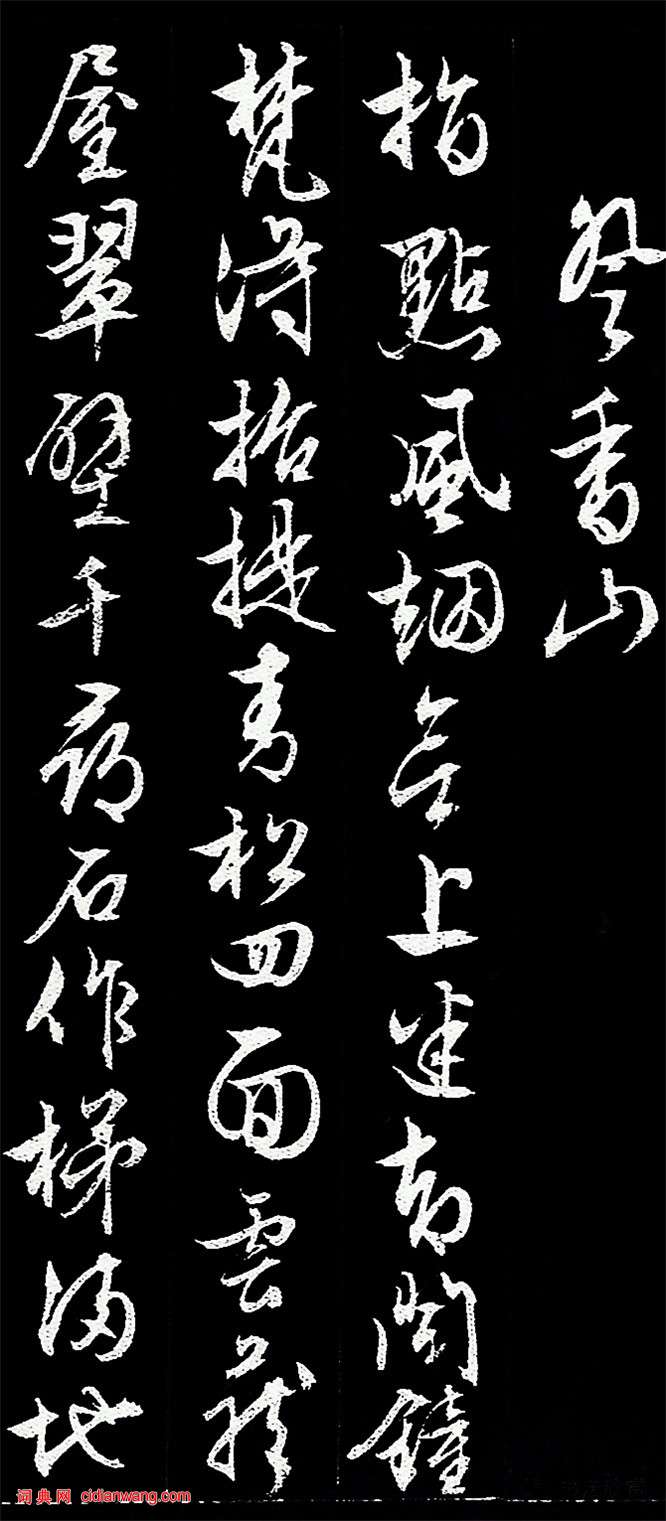 登香山
指點風烟欲上迷却聞鐘
梵得招提青松四面雲藏
屋翠壁千尋石作梯滿地
词典网 cidianwang.com